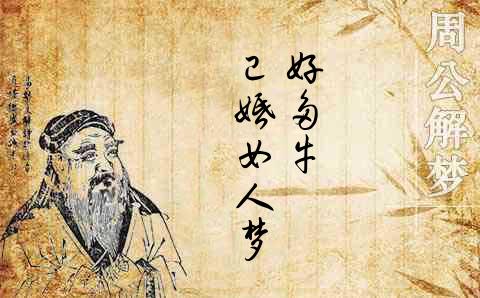 周公解梦
好多牛
已婚女人梦